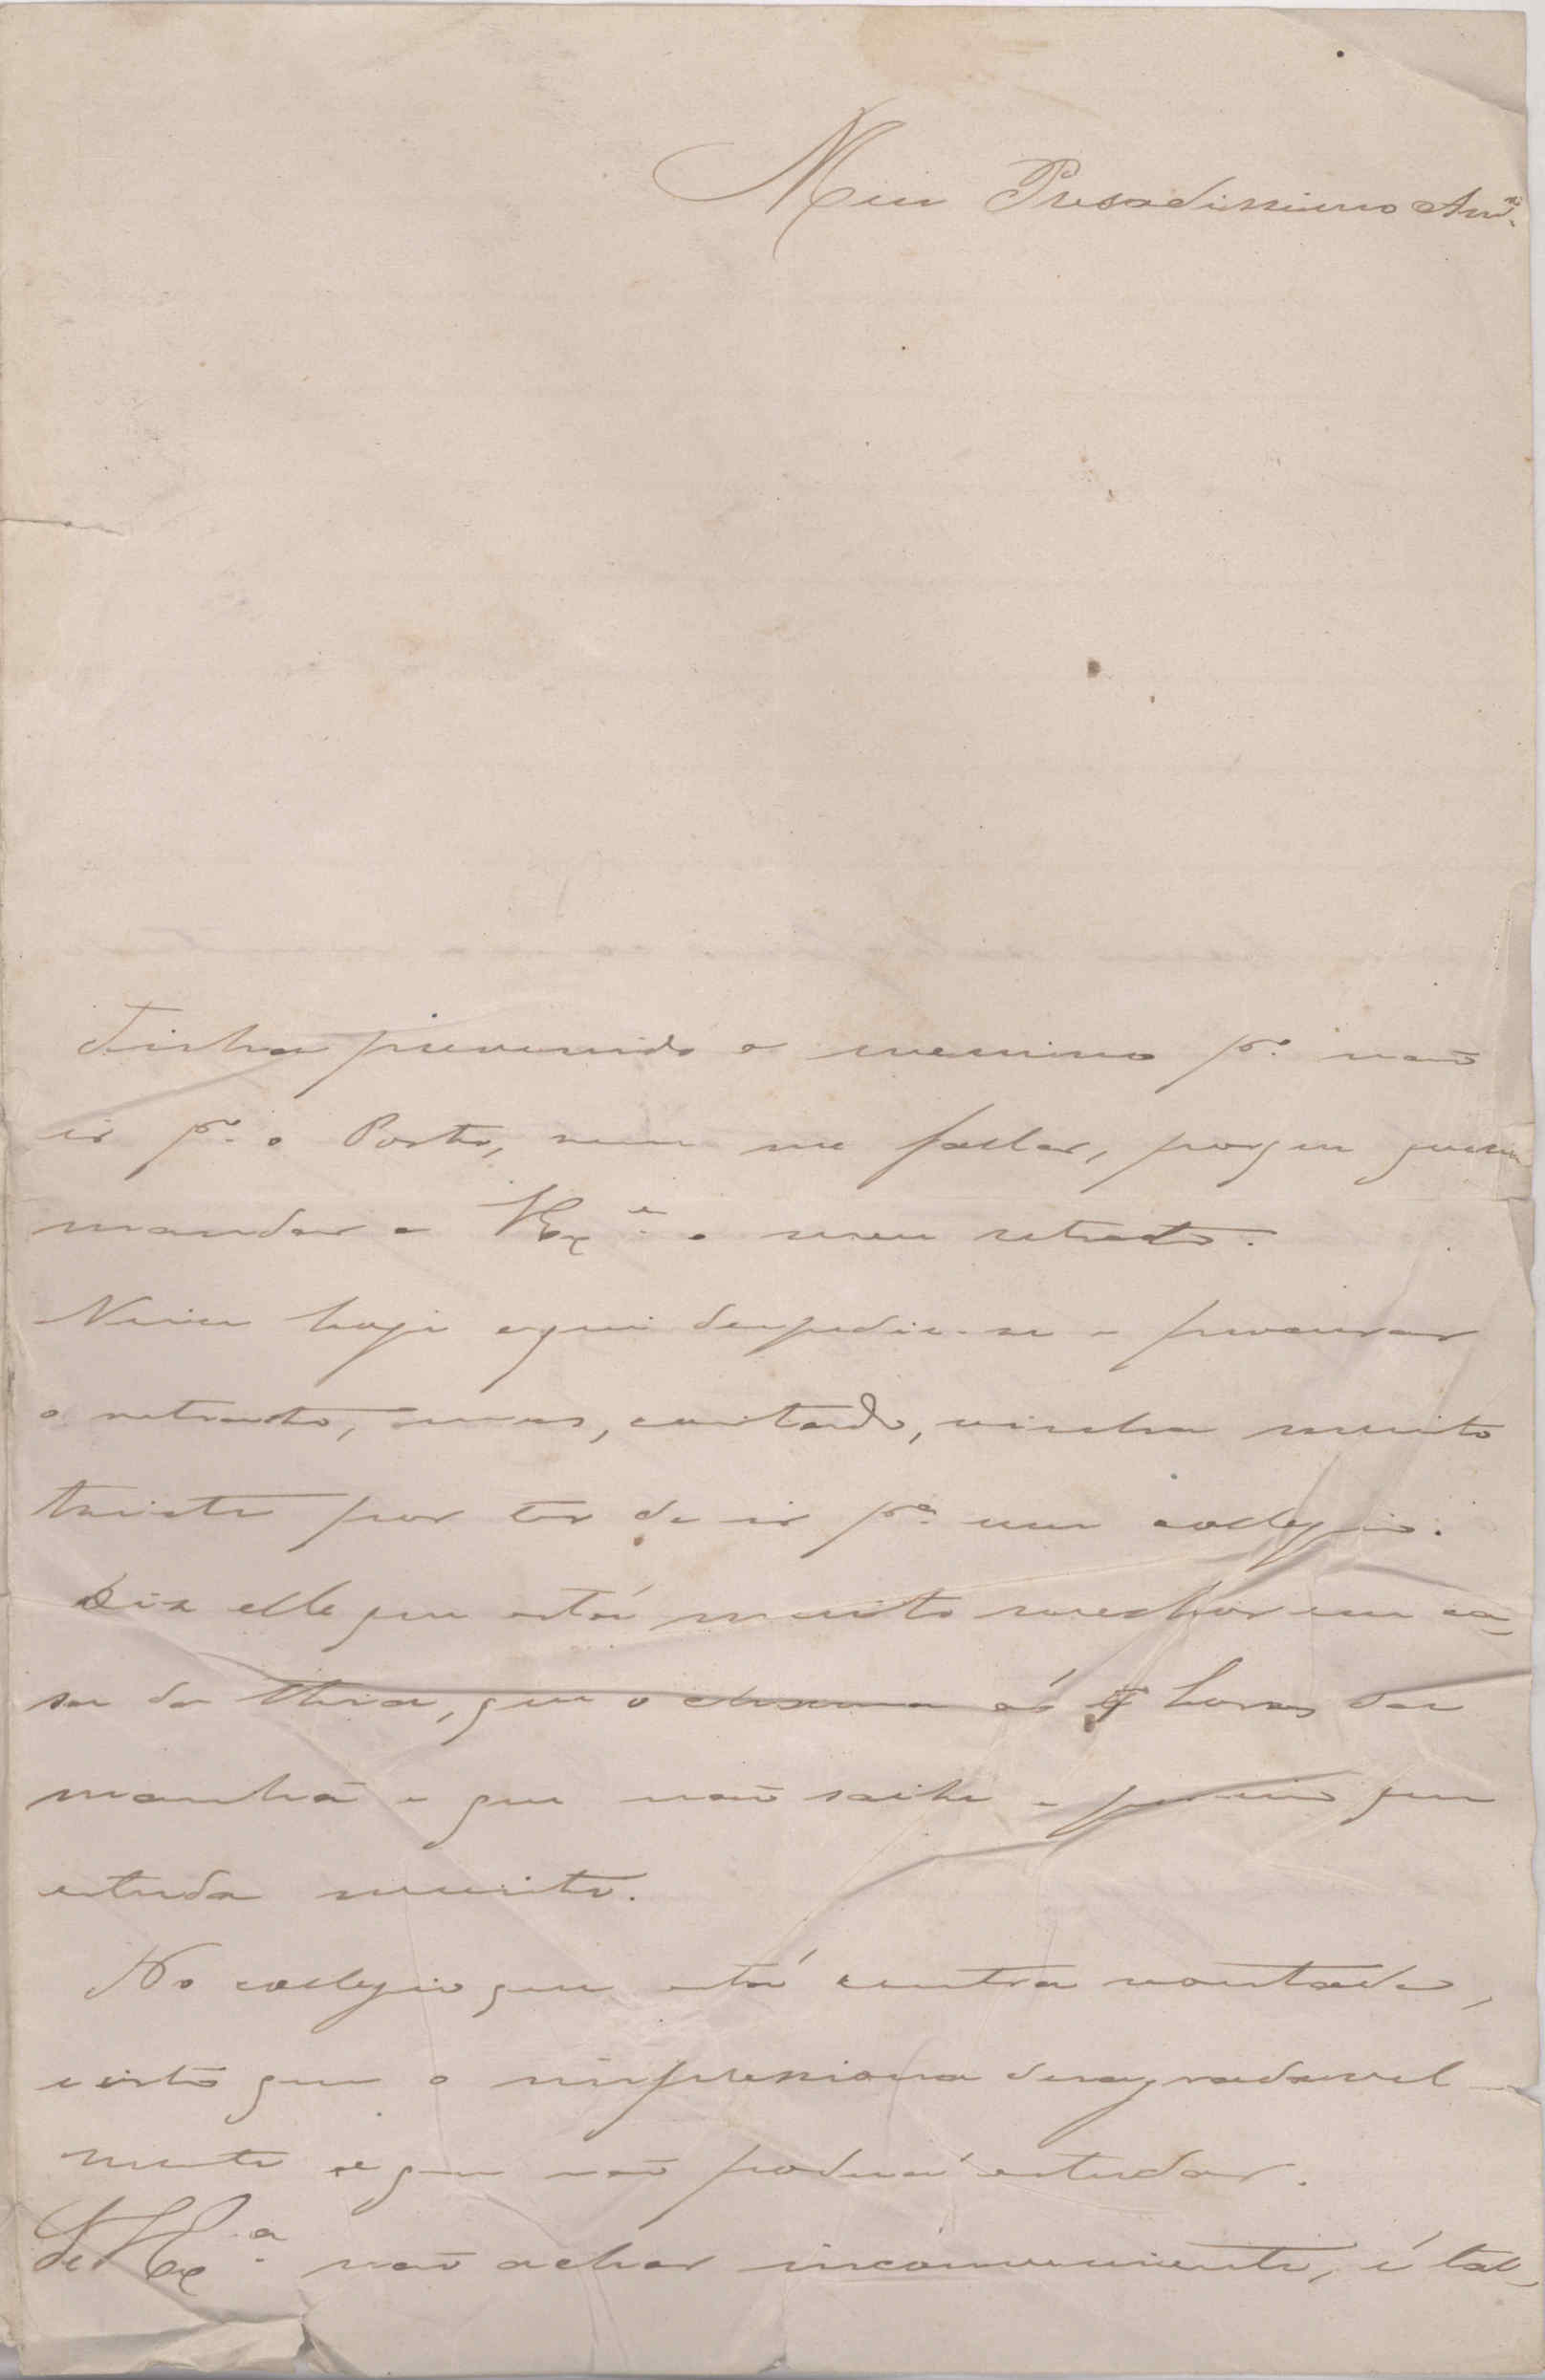 Meu Presadissimo Amº.
Tinha prevenido o menino pª. não
ir pª. o Porto, sem me fallar, porque queria
mandar a VExª. o meu retrato.
Veiu hoje aqui despedir-se e procurar
o retrato, mas, coitado, vinha muito
triste por ter de ir pª. um collegio.
Diz elle que está muito melhor em ca-
sa da thia, que o chama ás 5 horas da
manhã e que não sahe e por isso que
estuda muito.
No collegio que está contra vontade,
e isto que o impressiona desagradavel-
mente e que não poderá estudar.
Se VExª. não achar inconveniente, é tal-